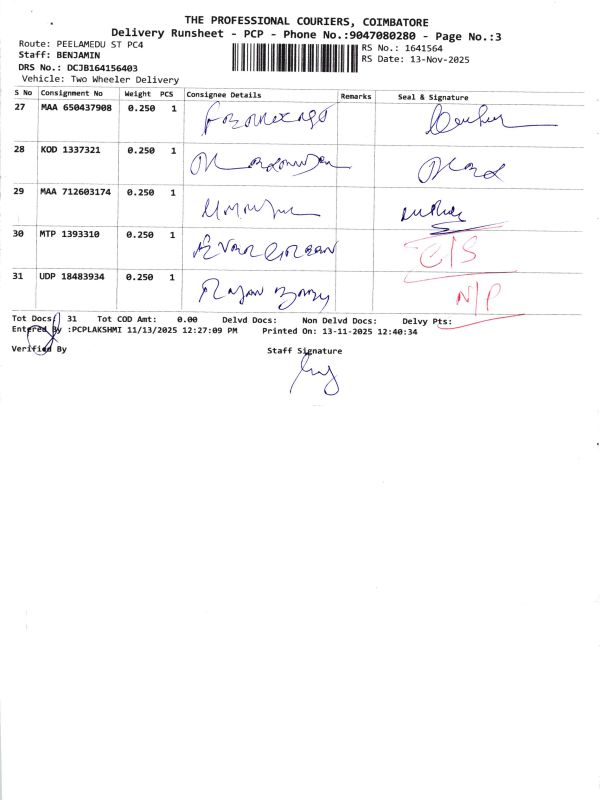 THE PROFESSIONAL COURIERS, COIMBATORE
Delivery Runsheet - PCP - Phone No.:9047080280 - Page No.:3
Route: PEELAMEDU ST PC4 RS No.: 1641564
Staff: BENJAMIN RS Date: 13-Nov-2025
DRS No.: DCJB164156403
Vehicle: Two Wheeler Delivery
S No Consignment No Weight PCS Consignee Details Remarks Seal & Signature
27 MAA 650437908 0.250 1
28 KOD 1337321 0.250 1
29 MAA 712603174 0.250 1
30 MTP 1393310 0.250 1 C/S
31 UDP 18483934 0.250 1 N/P
Tot Docs: 31 Tot COD Amt: 0.00 Delvd Docs: Non Delvd Docs: Delvy Pts:
Entered By :PCPLAKSHMI 11/13/2025 12:27:09 PM Printed On: 13-11-2025 12:40:34
Verified By Staff Signature